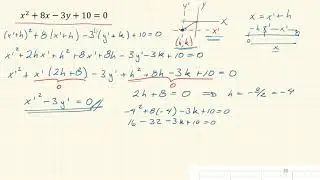 x² + 8x − 3y + 10 = 0
(x'+h)² + 8(x'+h) − 3(y'+k) + 10 = 0
x'² + 2hx' + h² + 8x' + 8h − 3y' − 3k + 10 = 0
x'² + x'(2h+8) − 3y' + h² + 8h − 3k + 10 = 0
0
0
x'² − 3y' = 0
2h + 8 = 0 ⇒ h = −8/2 = −4
−4² + 8(−4) − 3k + 10 = 0
16 − 32 − 3k + 10 = 0
y'
x
x'
(h,k)
x = x' + h